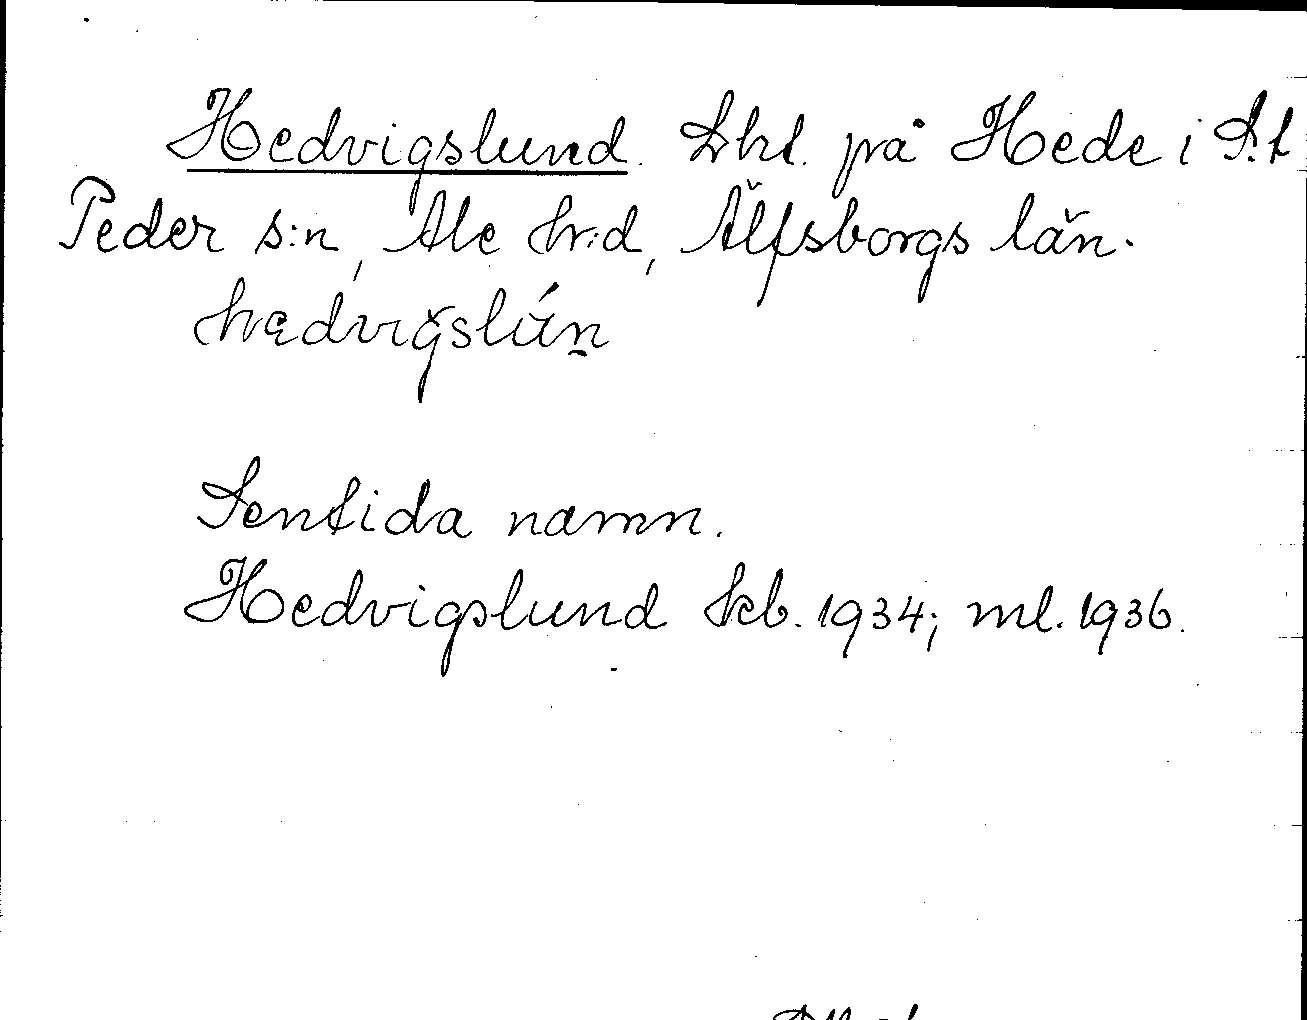 Hedvigslund. Lht. på Hede i S:t
Peder s:n, Ale hr:d, Älfsborgs län.
Sentida namn.
Hedvigslund kb. 1934; ml. 1936.